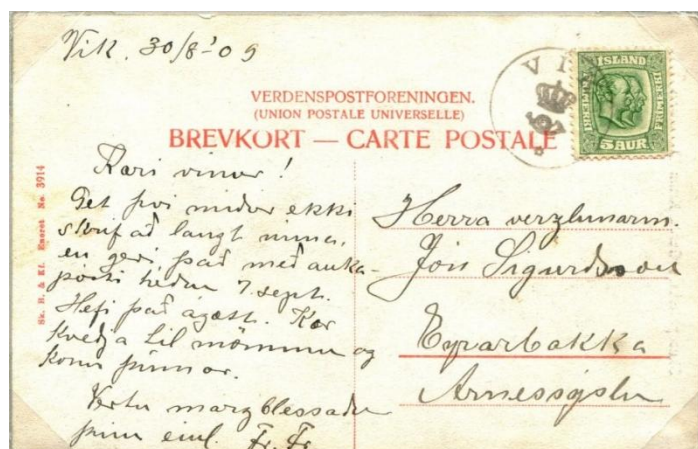 Vik. 30/8-'09
VERDENSPOSTFORENINGEN.
(UNION POSTALE UNIVERSELLE)
BREVKORT — CARTE POSTALE
VIK
ÍSLAND
FRIMERKI
FRIMERKI
5 AUR
Sk. B. & Kf. Eneret No. 3914
Kæri vinur!
Get því miður ekki
skrifað langt núna,
en geri það með auka-
pósti héðan 7. sept.
Hefi það ágætt. Kær
kveðja til mömmu og
konu þinnar.
Vertu margblessaður
þinn einl. Fr. Fr.
Herra verzlunarm.
Jón Sigurdsson
Eyrarbakka
Arnessýslu